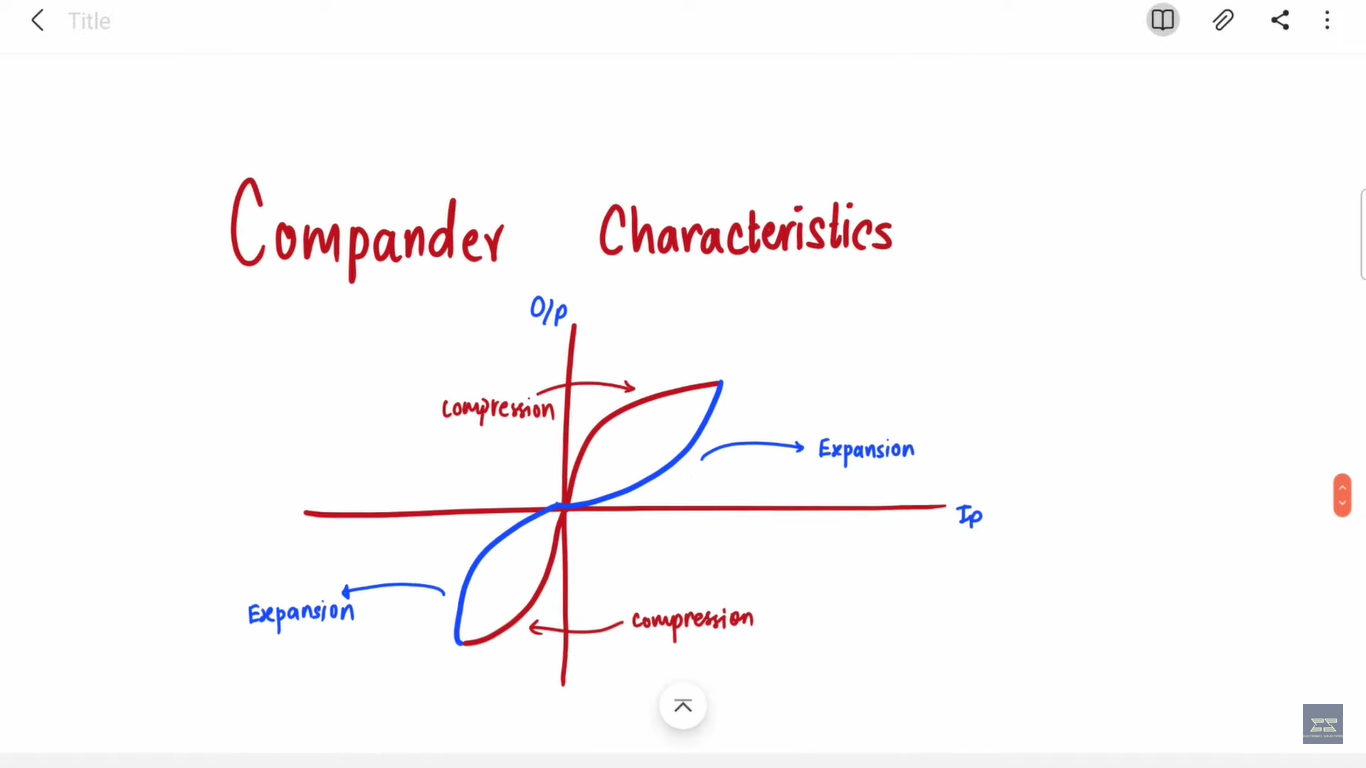 Title
Compander Characteristics
O/p
compression
Expansion
Ip
Expansion
compression